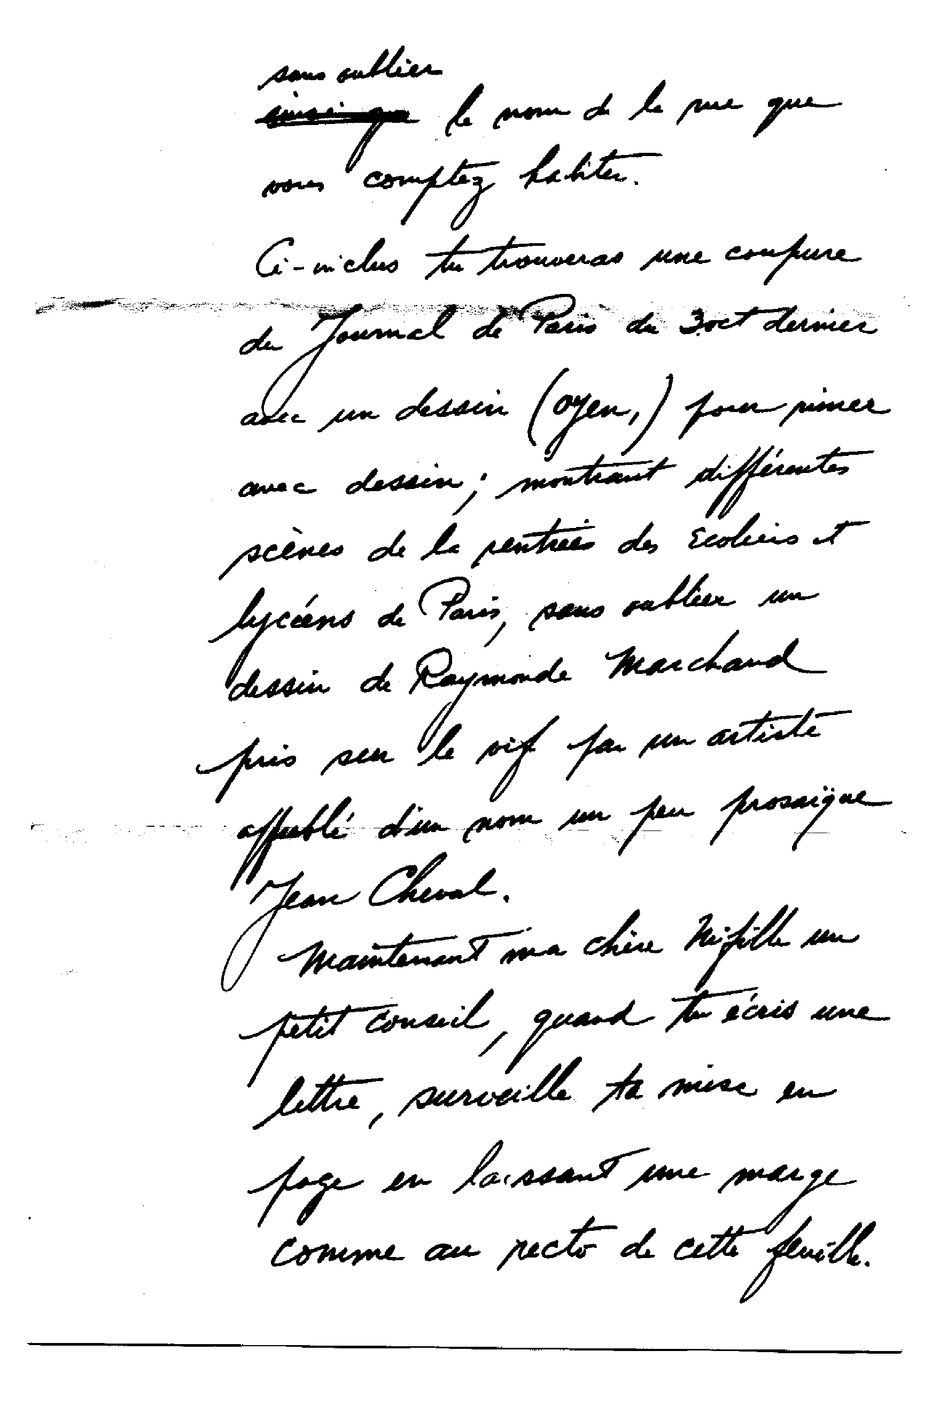 sans oublier
ainsi que le nom de la rue que
vous comptez habiter.
Ci-inclus tu trouveras une coupure
du Journal de Paris du 3 oct dernier
avec un dessin (oyen,) pour rimer
avec dessin; montrant différentes
scènes de la rentrées des Ecoliers et
lycéens de Paris, sans oublier un
dessin de Raymonde Marchand
pris sur le vif par un artiste
affublé d'un nom un peu prosaïque
Jean Cheval.
Maintenant ma chère un
petit conseil, quand tu écris une
lettre, surveille ta mise en
page en laissant une marge
comme au recto de cette feuille.